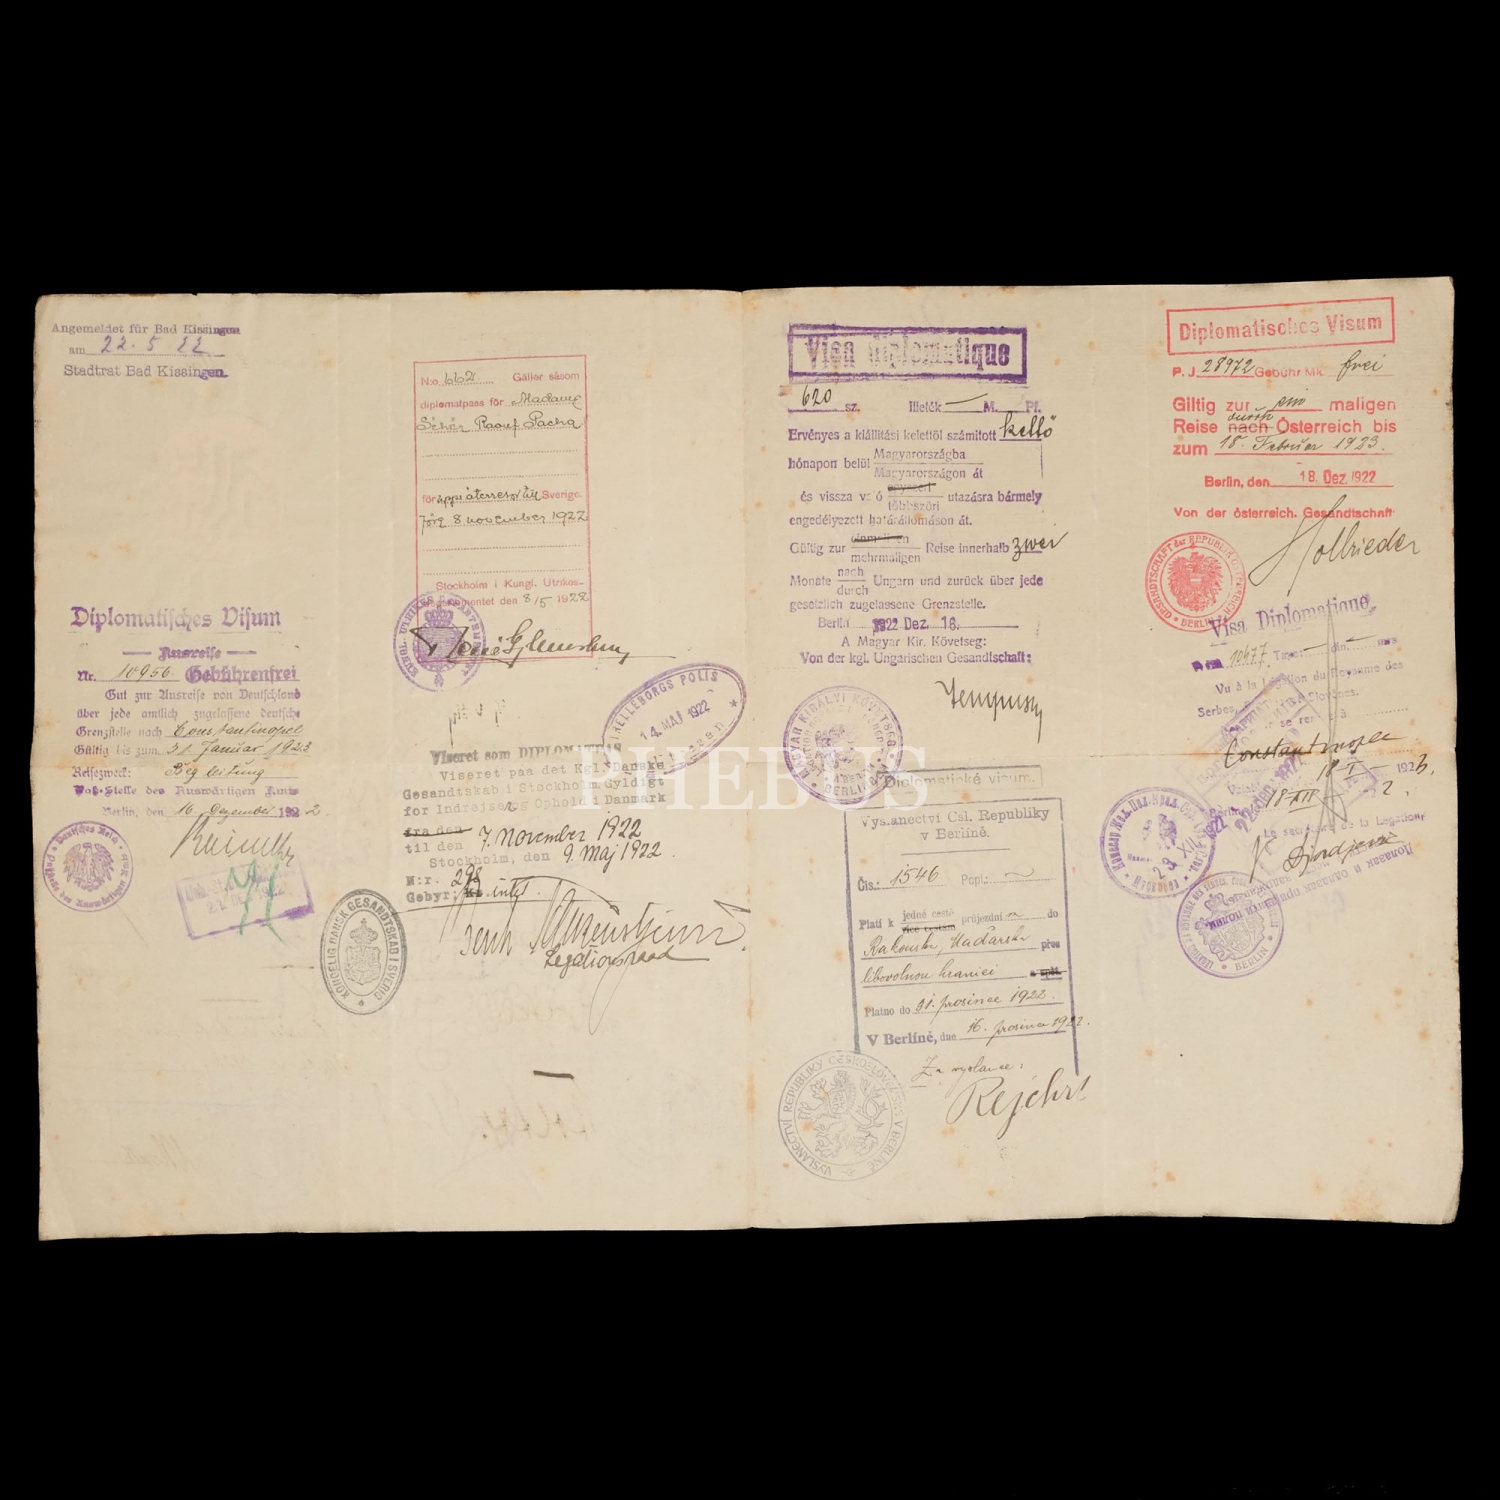 Angemeldet für Bad Kissingen
am 22.5 22
Stadtrat Bad Kissingen
Diplomatisches Visum
Ausreise
Nr. 10956. Gebührenfrei
Gut zur Ausreise von Deutschland
über jede amtlich zugelassene deutsche
Grenzstelle nach Constantinopel
Gültig bis zum 31. Januar 1923
Reisezweck: Begleitung
Paß-Stelle des Auswärtigen Amts
Berlin, den 16 Dezember 1922
Deutsches Reich
N:o 662 Gäller såsom
diplomatpass för Madame
Raouf Pacha
för uppr återresor till Sverige
före 8 november 1922
Stockholm i Kungl. Utrikes-
den 8/5 1922
TRELLEBORGS POLIS
14. MAJ 1922
Viseret som DIPLOMATPAS
Viseret paa det Kgl. Danske
Gesandtskab i Stockholm. Gyldigt
for Indrejse og Ophold i Danmark
fra den
til den 7. November 1922
Stockholm, den 9. Maj 1922.
N:r. 298
Gebyr: intet.
Legationsraad
KONGELIG DANSK GESANDTSKAB I SVERIG
Visa diplomatique
620 sz. Illeték — M. Pf.
Érvényes a kiállítási kelettől számított kettő
hónapon belül Magyarországba
Magyarországon át
és vissza való egyszeri utazásra bármely
többszöri
engedélyezett határállomáson át.
Gültig zur einmaligen Reise innerhalb zwei
mehrmaligen
Monate nach Ungarn und zurück über jede
durch
gesetzlich zugelassene Grenzstelle.
Berlin 1922 Dez. 16.
A Magyar Kir. Követség:
Von der kgl. Ungarischen Gesandtschaft:
MAGYAR KIRÁLYI KÖVETSÉG
BERLIN
PHEBUS
Diplomatické visum.
Vyslanectví Čsl. Republiky
v Berlíně.
Čís.: 1546 Popl.:
Platí k jedné cestě průjezdní do
více cestám
Rakouska, Maďarska přes
libovolnou hranici a zpět.
Platno do 31. prosince 1922.
V Berlíně, dne 16. prosince 1922.
Za vyslance:
Rejchrt
VYSLANECTVÍ REPUBLIKY ČESKOSLOVENSKÉ V BERLÍNĚ
Diplomatisches Visum
P. J 28972 Gebühr Mk. frei
Giltig zur ein maligen
durch
Reise nach Österreich bis
zum 18. Februar 1923.
Berlin, den 18. Dez. 1922
Von der österreich. Gesandtschaft
Hollrieder
GESANDTSCHAFT der REPUBLIK ÖSTERREICH
BERLIN
Visa Diplomatique
10477 Taxe: — din — mrs
Vu à la Légation du Royaume des
Serbes, Slovènes.
se rendre à
Constantinople
18-I- 1923.
18-XII 2.
Le secrétaire de la Légation,
23. XII 1922
BERLIN